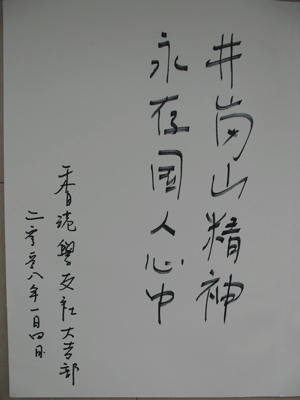 井岗山精神
永存国人心中
香港與友社大專部
二零零八年一月四日